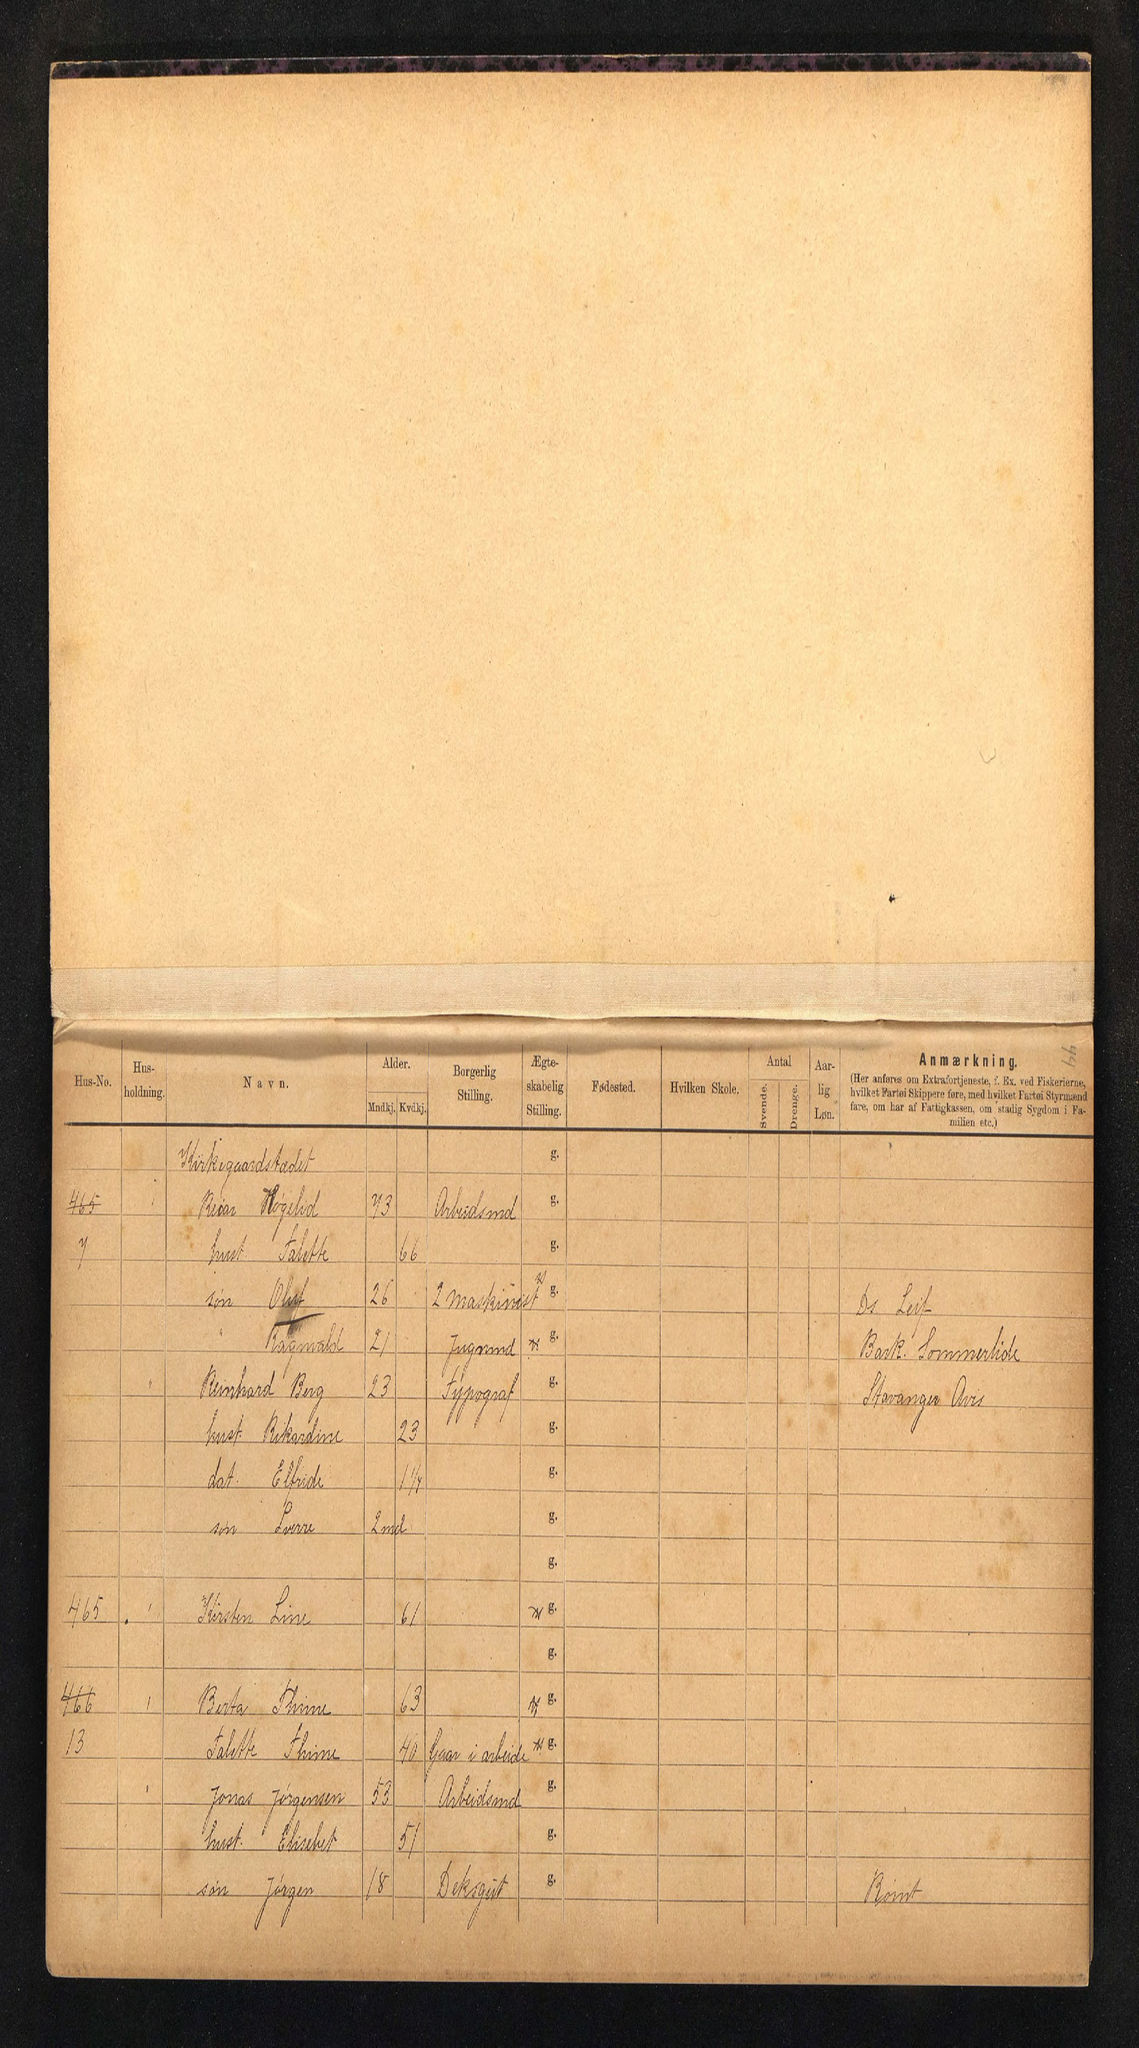 44
Hus-No. Hus-holdning. Navn. Alder. Mndkj. Kvdkj. Borgerlig Stilling. Ægte-skabelig Stilling. Fødested. Hvilken Skole. Antal Svende. Drenge. Aar-lig Løn. Anmærkning.
(Her anføres om Extrafortjeneste, f. Ex. ved Fiskerierne,
hvilket Fartøi Skippere føre, med hvilket Fartøi Styrmænd
fare, om har af Fattigkassen, om stadig Sygdom i Fa-
milien etc.)
Kirkegaardstædet g.
465 Høgelid 73 Arbeidsmd g.
7 hust Talette 66 g.
søn Oluf 26 2 Maskinist g. Ds Leif
" Ragnvald 21 Jugmnd g. Bark. Sommerlide
" Reinhard Berg 23 Typograf g. Stavanger Avis
hust. Rikardine 23 g.
dat. Elfride g.
søn Sverre 2 md g.
g.
465 Kirsten Line 61 g.
g.
466 Berta Thime 63 g.
13 Talette Thime 40 Gaar i arbeide g.
Jonas Jørgensen 53 Arbeidsmd g.
hust. Elisebet 51 g.
søn Jørgen 18 Deksgut g. Rømt